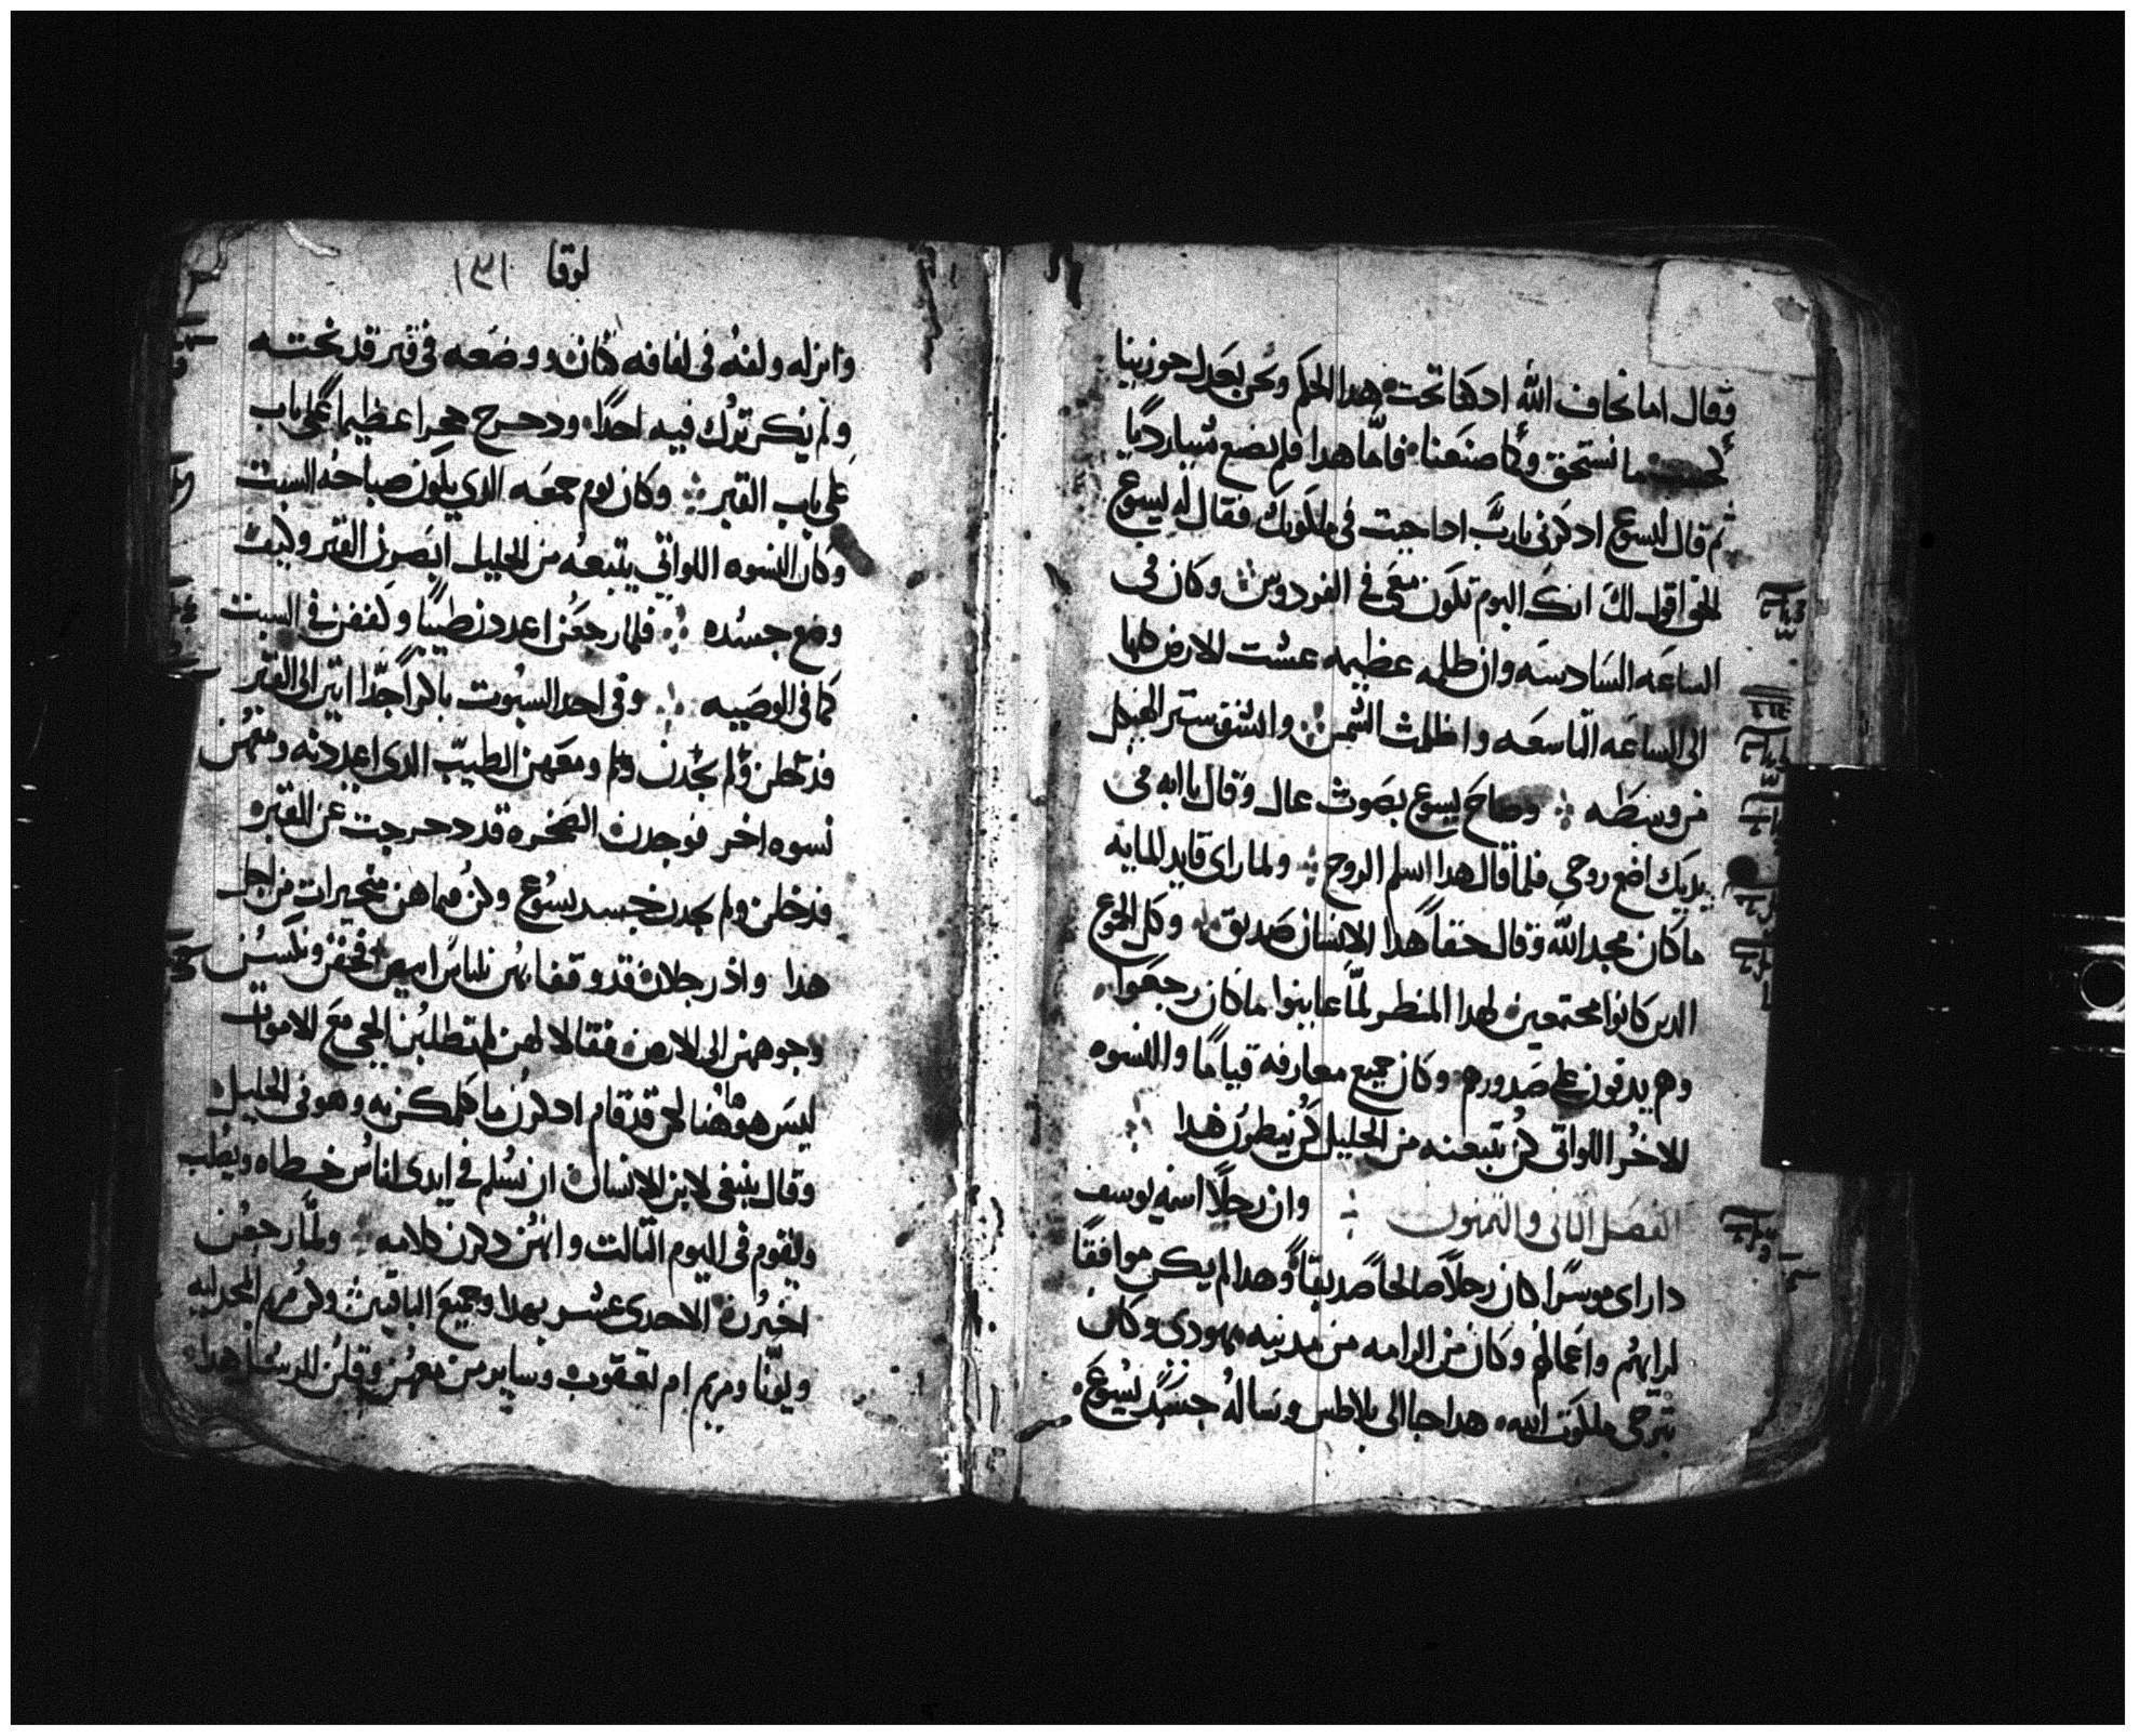 وقال اما تخاف الله اد كنا تحت هدا الحكم ونحن بعدل جوزينا
كما نستحق وكما صنعنا فاما هدا فلم يصنع شيا رديا
ثم قال ليسوع ادكرني يارب ادا جيت في ملكوتك فقال له يسوع
الحق اقول لك انك اليوم تكون معي في الفردوس وكان في
الساعه السادسه وان ظلمه عظيمه غشت الارض كلها
الى الساعه التاسعه واظلمت الشمس وانشق ستر الهيكل
من وسطه وصاح يسوع بصوت عال وقال يا ابه في
يديك اضع روحي فلما قال هدا اسلم الروح ولما راى قايد المايه
ما كان مجد الله وقال حقاً هدا الانسان صديق وكل الجموع
الدين كانوا مجتمعين لهدا المنظر لمّا عاينوا ما كان رجعوا
وهم يدقون على صدورهم وكان جميع معارفه قياما والنسوه
الاخر اللواتي كن تبعنه من الجليل كن ينظرن هدا
الفصل التاني والتمنون وان رجلاً اسمه يوسف
داراى موسرا كان رجلاً صالحاً صديقاً وهدا لم يكن موافقاً
لرايهم واعمالهم وكان من الرامه من مدينه يهودي وكان
يترجى ملكوت الله هدا جا الى بلاطس وساله جسد يسوع
لوقا ١٥١
وانزله ولفه في لفافه كتان ووضعه في قبر قد نحته
ولم يكن ترك فيه احداً ودحرج حجرا عظيما على باب
على باب القبر وكان يوم جمعه الدي يكون صباحه السبت
وكان النسوه اللواتي يتبعنه من الجليل ابصرن القبر وكيف
وضع جسده فلما رجعن اعددن طيبًا وكففن في السبت
كما في الوصيه وفي احد السبوت باكراً جدّا اتين الى القبر
فدخلن ولم يجدن ومعهن الطيب الدي اعددنه ومعهن
نسوه اخر فوجدن الصخره قد دحرجت عن القبره
فدخلن ولم يجدن جسد يسوع وكن فيما هن متحيرات من اجل
هدا واذ رجلان قد وقفا بهن بلباس ابيض فخفن ونكسن
وجوههن الى الارض فقالا لهن لم تطلبن الحي مع الاموات
ليس هو هاهنا لكن قد قام ادكرن ما كلمكن به وهو في الجليل
وقال ينبغي لابن الانسان ان يسلم في ايدي اناس خطاه ويصلب
ويقوم في اليوم التالت وانهن دكرن كلامه ولمّا رجعن
اخبرن الاحدى عشر بهدا وجميع الباقين وكن مريم المجدليه
ويونّا ومريم ام يعقوب وساير من معهن وقلن للرسل هدا